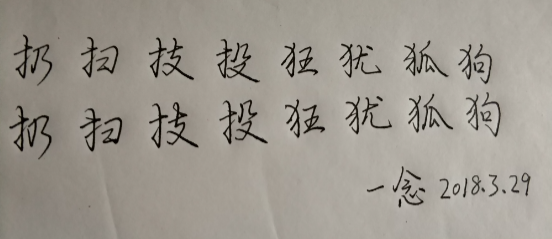 扔 扫 技 投 狂 犹 狐 狗
扔 扫 技 投 狂 犹 狐 狗
一念 2018.3.29